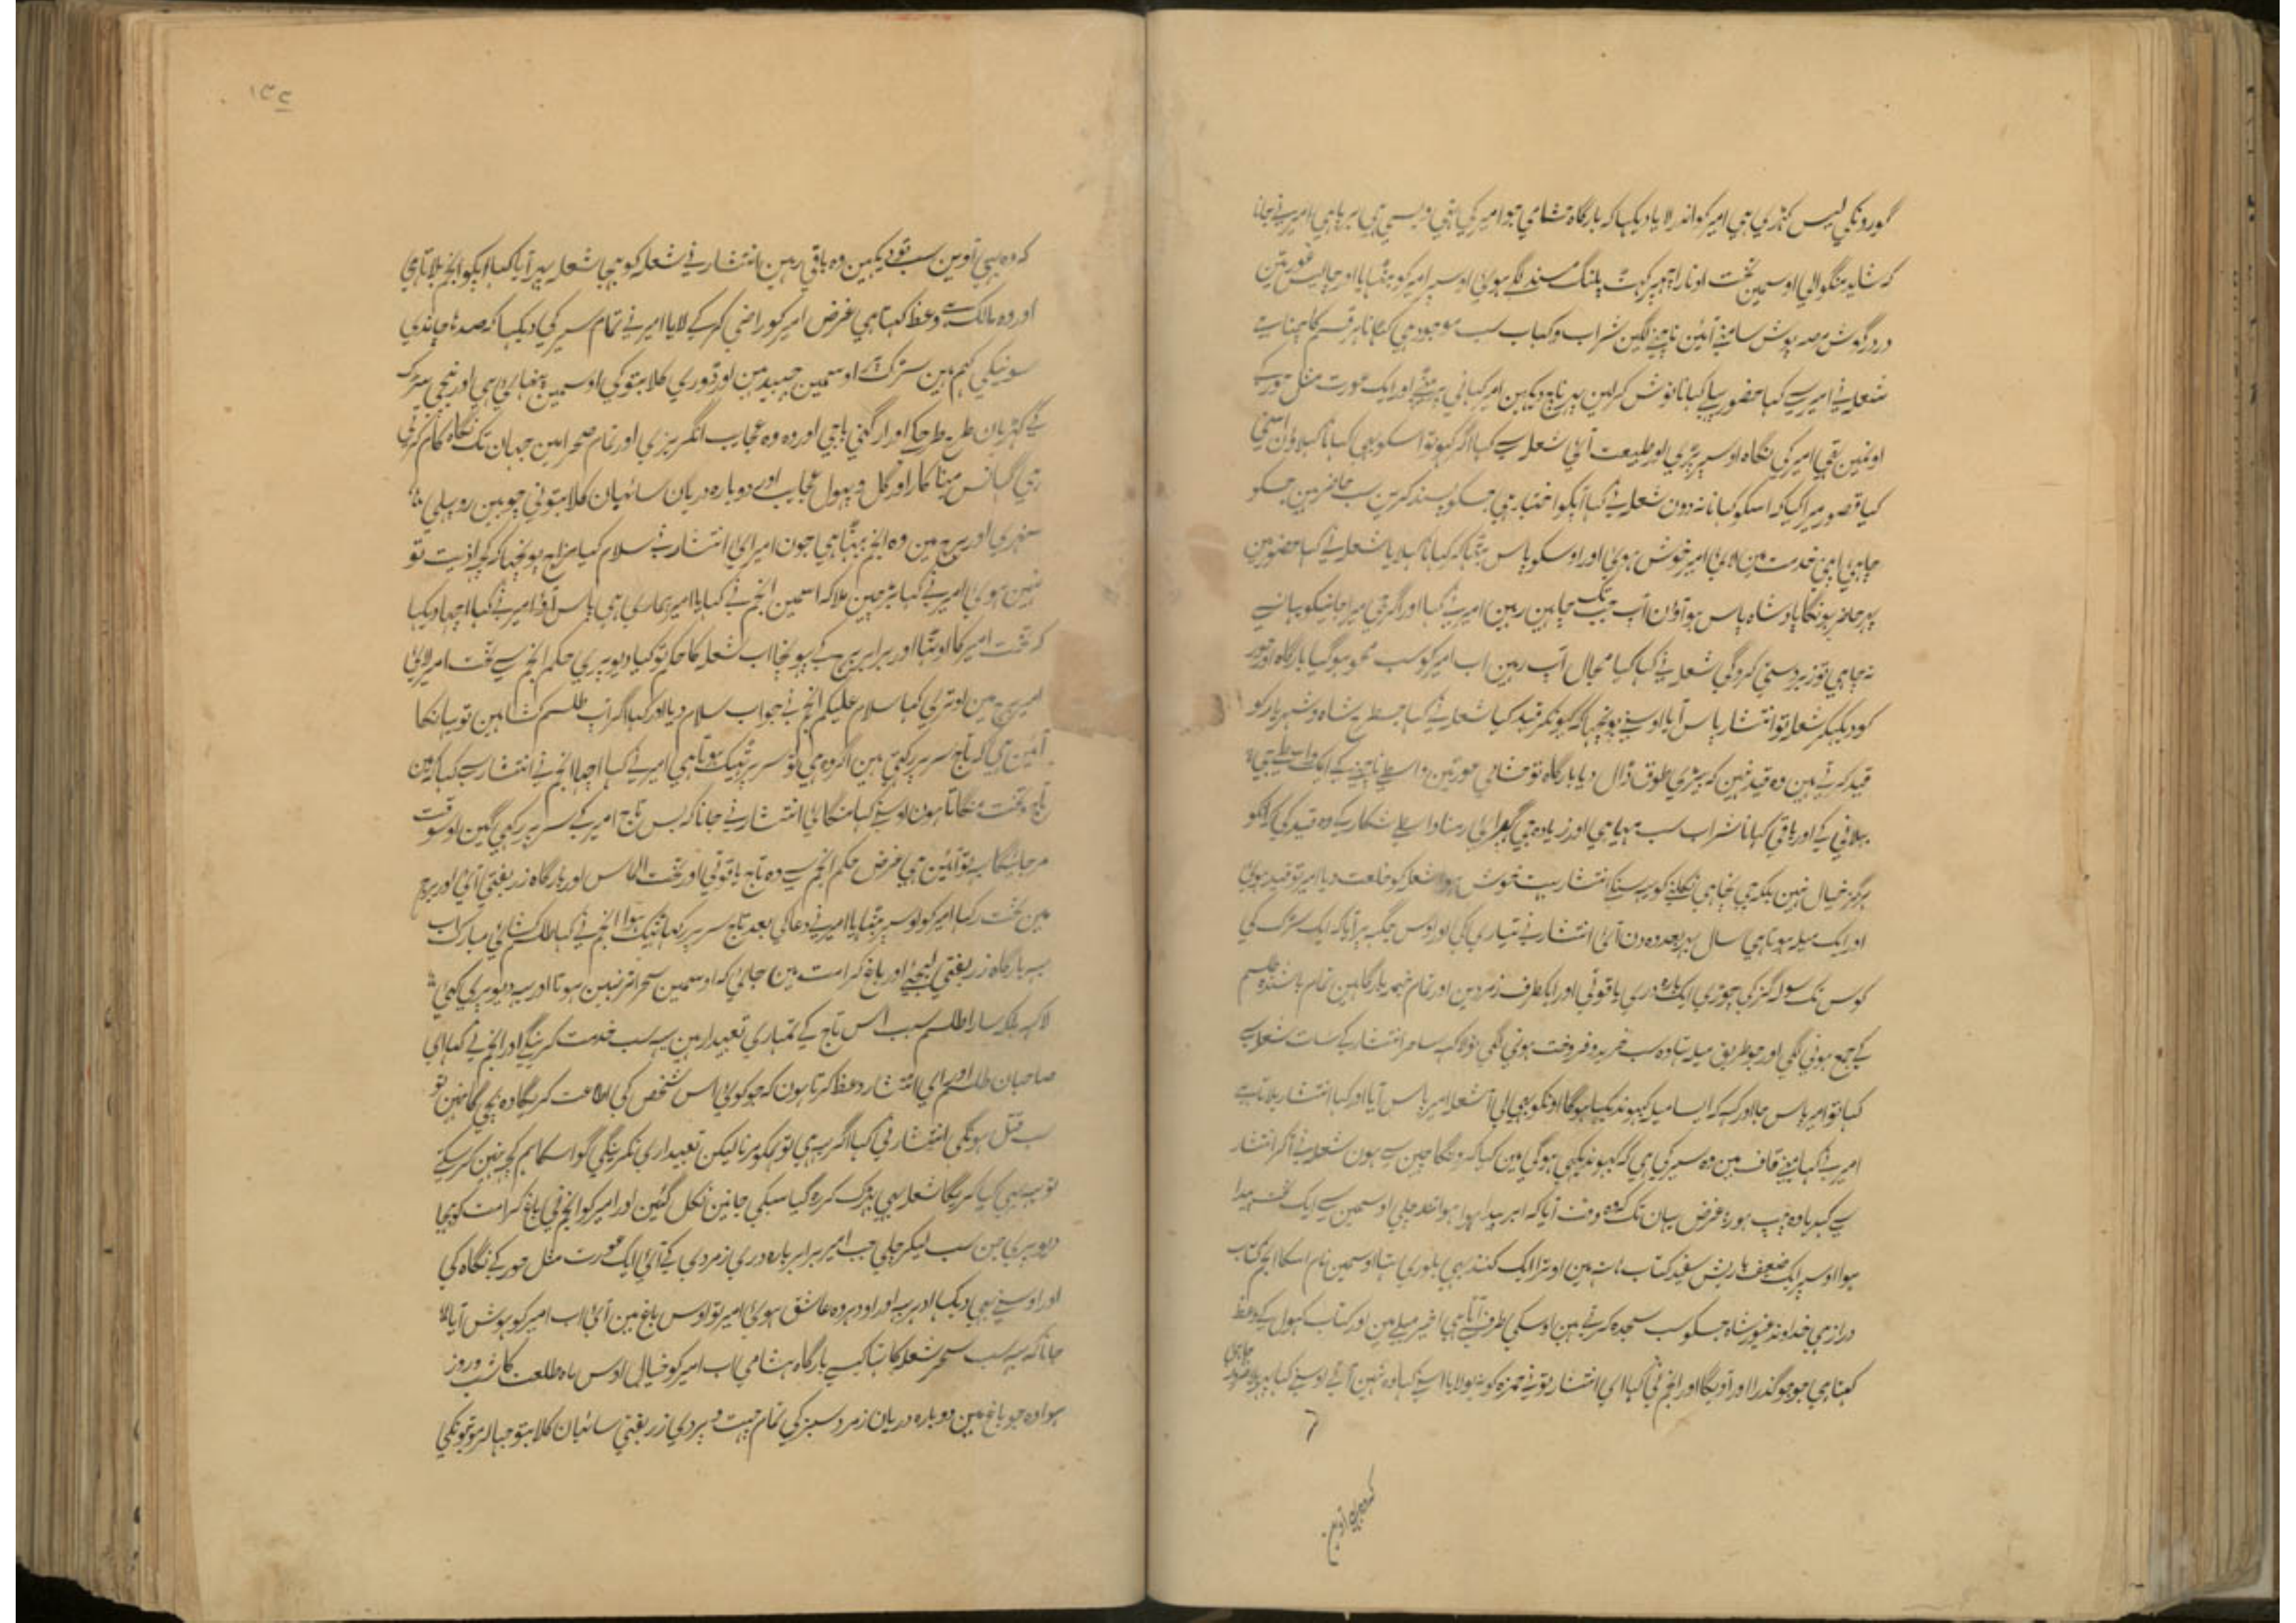 کوردنکی لیس کہڑی ہی امیر کو اندر لایا دیکہا کہ بارگاہ ہشامی جو امیر کی تہی ویسی ہی برپا ہی امیر نی جانا
کہ شاید منگوالی اوسمین تخت اوتارا پلنگ مسند لگی ہوئی اوسپر امیر کو بٹہایا اور چالیس عورتین
درگوش سامنی آئین ناچنی لگین شراب و کباب سب موجود ہی کہانا ہر قسم کا چنا ہی
شعلہ نی امیر سی کہا حضور کہانا نوش کرلین پہر ناچ دیکہین امیر کہانی بیٹہی اور ایک عورت مثل حور کی
اونمین تہی امیر کی نگاہ اوسپر پڑی اور طبیعت آئی شعلہ سی کہا اگر کہو تو اسکو بہی کہانا کہلاؤن اسنی
کیا قصور میرا کیا کہ اسکو کہانا نہ دون شعلہ نی کہا آپکو اختیار ہی جسکو پسند کرین سب حاضر ہین جسکو
چاہی اپنی خدمت مین امیر خوش ہوئی اور اوسکو پاس بٹہا کر کہانا کہلایا شعلہ نی کہا حضور مین
پہر حاضر ہونگا بادشاہ پاس ہو آؤن آپ جب تک چاہین رہین امیر نی کہا اور اگر جی میرا جانیکو یہانسی
نہ چاہی تو زبردستی کروگی شعلہ نی کہا کیا مجال آپ رہین اب امیر کو سب محو ہوگیا بارگاہ اور حور
کو دیکہکر شعلہ تو انتشار پاس آیا اوسنی پونچہا کہ کیونکر قید کیا شعلہ نی کہا جسطرح شاہ و شہریار کو
قید کرتی ہین وہ قید نہین کہ بیڑی طوق ڈال دیا بارگاہ تو ہشامی عورتین واسطی ناچنی کی ایک واسطی جی
بہلانی کی اور باقی کہانا شراب سب مہیا ہی اور زیادہ جی گہبرائی رمنا واسطی شکار کی وہ قید کی کہ اونکو
ہرگز خیال نہین بلکہ جی نچاہی نکلنی کو یہ سنکر انتشار بہت خوش ہوا شعلہ کو خلعت دیا امیر تو قید ہوئی
اور ایک میلہ ہوتا ہی سال بہر بعد وہ دن آئی انتشار نی تیاری کی اور اوس جگہ پر آیا کہ ایک سڑک کی
کوس تک سولہ گز کی چوڑی ایک بارہ دری یاقوتی اور ایکطرف زمردین اور تمام خیمہ بارگاہین تمام باشندہ طلسم
کی جمع ہونی لگی اور جو طریق میلہ تہا وہ سب خرید و فروخت ہونی لگی تو لاکہہ ساحر انتشار کی سات شعلہ سی
کہا تو امیر پاس جا اور کہہ کہ ایسا میلہ کبہو ندیکہا ہوگا اونکو بہی لی آ شعلہ امیر پاس آیا اور کہا انتشار بلاتا ہی
امیر نی کہا مینی قاف مین وہ سیر کی ہی کہ کبہو ندیکہی ہوگی مین کیا کرونگا چین سی ہون شعلہ نی آکر انتشار
سی کہہ دیا وہ چپ ہو رہا غرض یہان تک کہ وہ وقت آیا کہ ابر پیدا ہوا ہوا تند چلی اوسمین سی ایک تخت پیدا
ہوا اوسپر ایک ضعیف با ریش سفید کتاب ہاتہہ مین اوترا ایک گنبد بہی بلوری تہا اوسمین نام اسکا انجم کتاب
دراز ہی خداوند فنور شاہ جسکو سب سجدہ کرتی ہین اوسکی طرف سی آتا ہی اخیر میلی مین اور کتاب کہول کی وعظ
کہتا ہی جو جو گذرا اور آویگا اور انجم نی کہا ای انتشار تو نی حمزہ کو نہ بولایا اسنی کہا وہ نہین آتی اوسنی کہا پہر بلاؤ چاہی
کہ وہ بہی آوین سب تو دیکہین وہ باقی رہین انتشار نی شعلہ کو بہی شعلہ پہر آیا کہا آپکو انجم بلاتا ہی
اور وہ مالک سی وعظ کہتا ہی غرض امیر کو راضی کر کی لایا امیر نی تمام سیر کی دیکہا کہ صدہا چاندی
سونیکی کہم ہین سڑک پر اوسمین چہید ہین اور ڈوری کلابتو کی اوسمین پنہائی ہی اور نیچی سڑک
کی کہڑیان طرح طرحکی اور ارگنی باجی اور وہ وہ عجایب انگریزی اور تمام صحرا مین جہان تک نگاہ کام کرتی
ہی گہانس مینا کار اور گل و پہول عجایب اور دو بارہ دریان سائبان کلابتونی چوبین روپہلی
سنہری اور برج مین وہ انجم بیٹہا ہی جون امیر آئی انتشار نی سلام کیا مزاج پونچہا کہ کچہہ اذیت تو
نہین ہوئی امیر نی کہا بڑی چین ملا کہ اسمین انجم نی کہا یا امیر ہماری ہی پاس آؤ امیر نی کہا اچہا دیکہا
کہ تخت امیر کا اوٹہا اور برابر برج کی پہونچا اب شعلہ کا حکم تو کیا دیو پری حکم انجم سی تخت امیر لائی
امیر برج مین اوتری کہا سلام علیکم انجم نی جواب سلام دیا اور کہا اگر آپ طلسم کشا ہین تو یہانکا
آئین ہی کہ تاج سر پر رکہتی ہین اگر وہ ہی تو سر پر ٹہیک ہوتا ہی امیر نی کہا اچہا انجم نی انتشار سی کہا کہ مین
تاج و تخت منگاتا ہون اوسنی کہا منگائی انتشار نی جانا کہ بس تاج امیر کی سر پر رکہی گین اوسوقت
مرجائیگا یہ تو آئین ہی غرض حکم انجم سی وہ تاج یاقوتی اور تخت الماس اور بارگاہ زربفتی آئی اور برج
مین تخت رکہا امیر کو اوسپر بٹہایا امیر نی دعا کی بعد تاج سر پر رکہا ٹہیک ہوا انجم نی کہا طلسم کشائی مبارک اب
یہ بارگاہ زربفتی لیجئی اور باغ کرامت مین جائی کہ اوسمین سحر اثر نہین ہوتا اور یہ دیو پری کئی
لاکہہ بلکہ سارا طلسم سب اس تاج کی تمہاری تعبیدار ہین یہ سب خدمت کرینگی اور انجم نی کہا ای
صاحبان طلسم اور ای انتشار وعظ کرتا ہون کہ جو کوئی اس شخص کی اطاعت کریگا وہ بچی گا نہین تو
سب قتل ہونگی انتشار نی کہا اگر یہ ہی تو ہمکو مرنا لیکن تعبیداری نکرینگی گو اسکا ہم کچہہ نہین کر سکتی
تو یہ بہی کیا کریگا شعلہ بہی پہڑک کر رہ گیا سبکی جانین نکل گئین اور امیر کو انجم نی باغ کرامت کو بہیجا
دیو پری جن سب لیکر چلی جب امیر برابر بارہ دری زمردی کی آئی ایک عورت مثل حور کی نگاہ کی
اور اوسنی بہی دیکہا ادہر یہ اور اودہر وہ عاشق ہوئی امیر تو اوس باغ مین آئی اب امیر کو ہوش آیا
جانا کہ یہ سب سحر شعلہ کا تہا کیسی بارگاہ ہشامی اب امیر کو خیال اوس ماہ طلعت کا شب و روز
ہوا وہ جو باغ مین دو بارہ دریان زمرد سبز کی تمام چہت و پردی زربفتی سائبان کلابتو جہالر موتیونکی